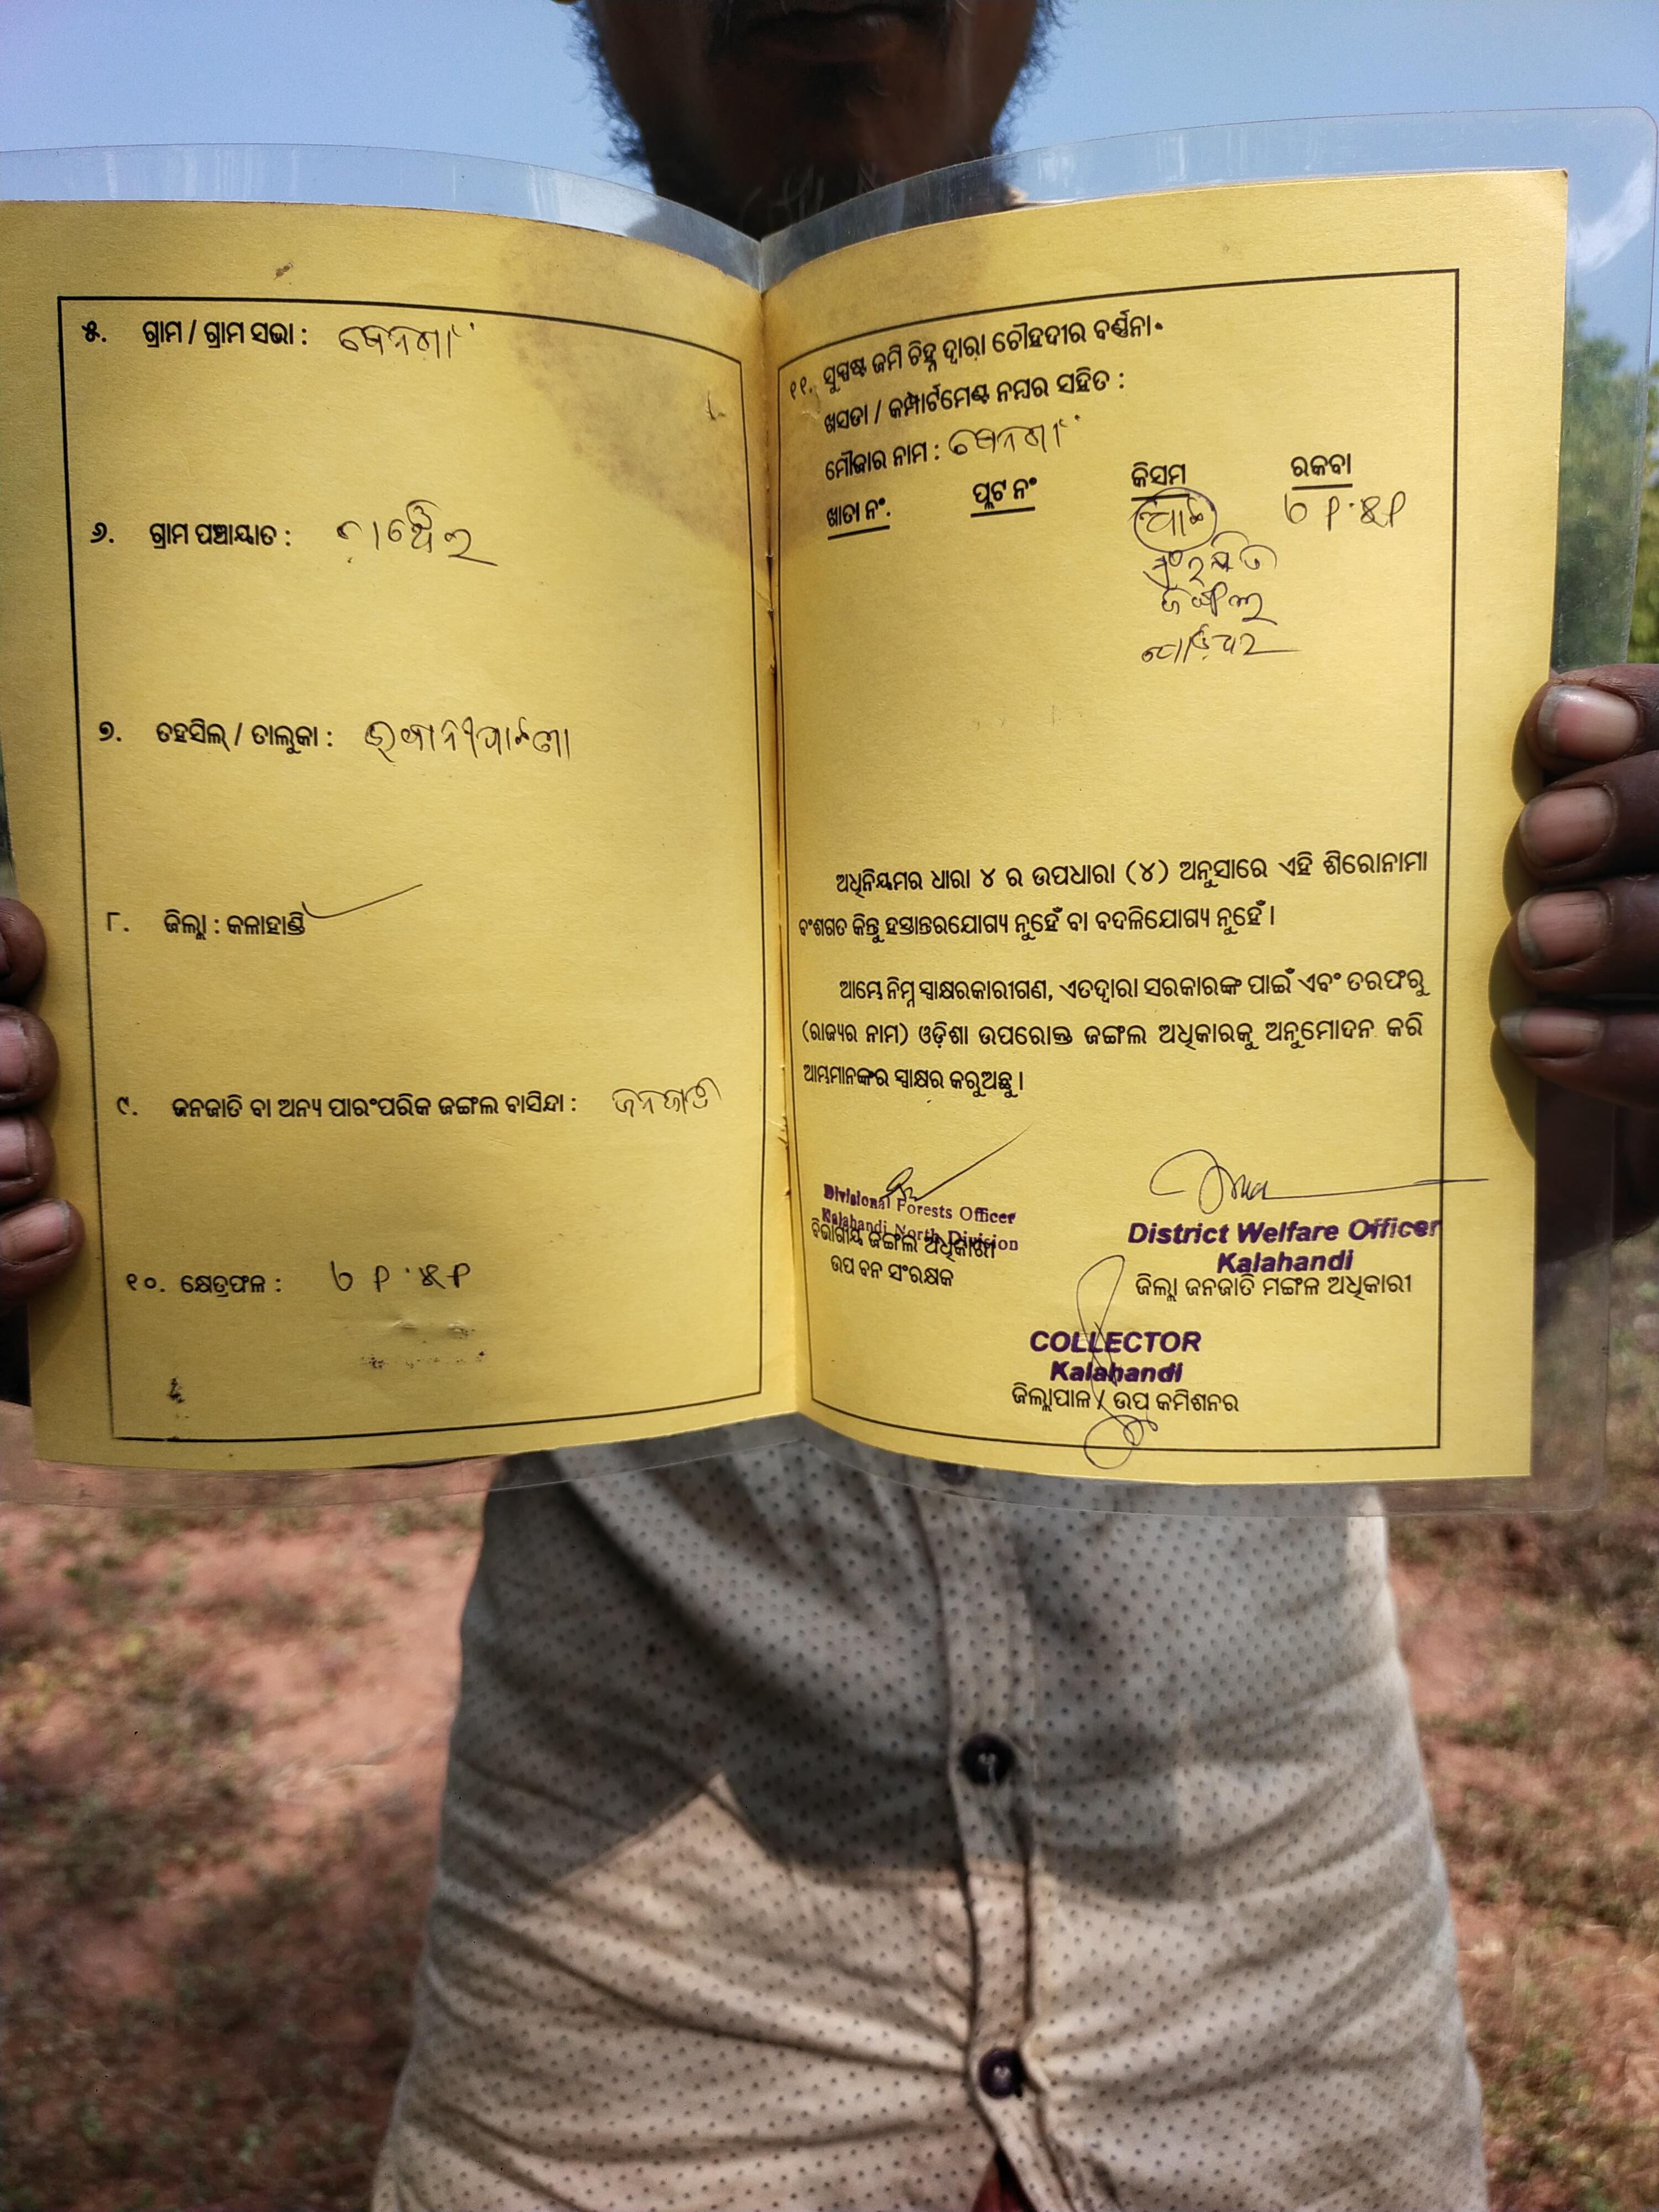 ୫. ଗ୍ରାମ / ଗ୍ରାମ ସଭା :
୬. ଗ୍ରାମ ପଞ୍ଚାୟାତ :
୭. ତହସିଲ୍ / ତାଲୁକା : ଭବାନୀପାଟଣା
୮. ଜିଲ୍ଲା : କଳାହାଣ୍ଡି
୯. ଜନଜାତି ବା ଅନ୍ୟ ପାରଂପରିକ ଜଙ୍ଗଲ ବାସିନ୍ଦା : ଜନଜାତି
୧୦. କ୍ଷେତ୍ରଫଳ :
୧୧. ସୁସ୍ପଷ୍ଟ ଜମି ଚିହ୍ନ ଦ୍ୱାରା ଚୌହଦୀର ବର୍ଣ୍ଣନା
ଖସଡା / କମ୍ପାର୍ଟମେଣ୍ଟ ନମ୍ବର ସହିତ :
ମୌଜାର ନାମ :
ଖାତା ନଂ. ପ୍ଲଟ ନଂ କିସମ ରକବା
ସଂରକ୍ଷିତ
ଜଙ୍ଗଲ
ଅଧିନିୟମର ଧାରା ୪ ର ଉପଧାରା (୪) ଅନୁସାରେ ଏହି ଶିରୋନାମା
ବଂଶଗତ କିନ୍ତୁ ହସ୍ତାନ୍ତରଯୋଗ୍ୟ ନୁହେଁ ବା ବଦଳିଯୋଗ୍ୟ ନୁହେଁ ।
ଆମ୍ଭେ ନିମ୍ନ ସ୍ୱାକ୍ଷରକାରୀଗଣ, ଏତଦ୍ୱାରା ସରକାରଙ୍କ ପାଇଁ ଏବଂ ତରଫରୁ
(ରାଜ୍ୟର ନାମ) ଓଡ଼ିଶା ଉପରୋକ୍ତ ଜଙ୍ଗଲ ଅଧିକାରକୁ ଅନୁମୋଦନ କରି
ଆମ୍ଭମାନଙ୍କର ସ୍ୱାକ୍ଷର କରୁଅଛୁ ।
Divisional Forests Officer
Kalahandi North Division
ବିଭାଗୀୟ ଜଙ୍ଗଲ ଅଧିକାରୀ
ଉପ ବନ ସଂରକ୍ଷକ
District Welfare Officer
Kalahandi
ଜିଲ୍ଲା ଜନଜାତି ମଙ୍ଗଳ ଅଧିକାରୀ
COLLECTOR
Kalahandi
ଜିଲ୍ଲାପାଳ / ଉପ କମିଶନର